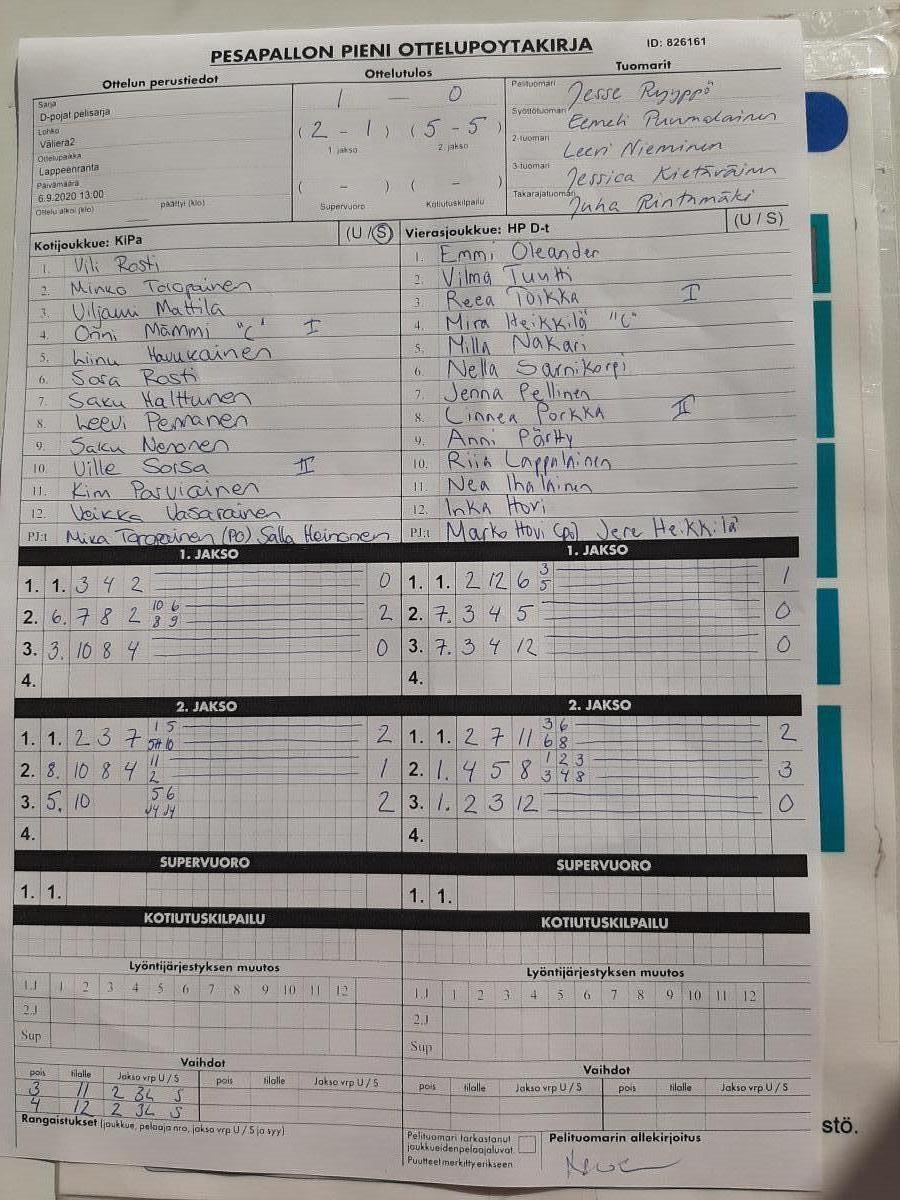 PESAPALLON PIENI OTTELUPOYTAKIRJA ID: 826161
Ottelun perustiedot
Sarja
D-pojat pelisarja
Lohko
Väliera2
Ottelupaikka
Lappeenranta
Päivämäärä
6.9.2020 13:00
Ottelu alkoi (klo) päättyi (klo)
Ottelutulos
1 - 0
(2 - 1) (5 - 5)
1. jakso 2. jakso
( - ) ( - )
Supervuoro Kotiutuskilpailu
Tuomarit
Pelituomari Jesse Ryyppö
Syöttötuomari Eemeli Puumalainen
2-tuomari Leevi Nieminen
3-tuomari Jessica Kietäväinen
Takarajatuomari Juha Rintamäki
Kotijoukkue: KiPa (U / S)
1. Vili Rosti
2. Minko Toropainen
3. Viljami Mattila
4. Onni Mämmi "C" I
5. Liinu Havukainen
6. Sara Rosti
7. Saku Halttunen
8. Leevi Pennanen
9. Saku Nenonen
10. Ville Sorsa II
11. Kim Parviainen
12. Veikka Vasarainen
PJ:t Mika Toropainen (PO) Salla Heinonen
Vierasjoukkue: HP D-t (U / S)
1. Emmi Oleander
2. Vilma Tuutti
3. Reea Toikka I
4. Mira Heikkilä "C"
5. Milla Nakari
6. Nella Sarnikorpi
7. Jenna Pellinen
8. Linnea Porkka II
9. Anni Pärtty
10. Riia Lappalainen
11. Nea Ihalainen
12. Inka Hovi
PJ:t Marko Hovi (po) Jere Heikkilä
1. JAKSO
1. 1. 3 4 2 0
2. 6. 7 8 2 10 6 8 9 2
3. 3. 10 8 4 0
4.
1. JAKSO
1. 1. 2 12 6 3 5 1
2. 7. 3 4 5 0
3. 7. 3 4 12 0
4.
2. JAKSO
1. 1. 2 3 7 1 5 10 2
2. 8. 10 8 4 11 2 1
3. 5. 10 5 6 J4 J4 2
4.
2. JAKSO
1. 1. 2 7 11 3 6 6 8 2
2. 1. 4 5 8 1 2 3 3 4 8 3
3. 1. 2 3 12 0
4.
SUPERVUORO
1. 1.
SUPERVUORO
1. 1.
KOTIUTUSKILPAILU
KOTIUTUSKILPAILU
Lyöntijärjestyksen muutos
1.J 1 2 3 4 5 6 7 8 9 10 11 12
2.J
Sup
Lyöntijärjestyksen muutos
1.J 1 2 3 4 5 6 7 8 9 10 11 12
2.J
Sup
Vaihdot
pois tilalle Jakso vrp U / S pois tilalle Jakso vrp U / S
3 11 2 3L S
4 12 2 3L S
Vaihdot
pois tilalle Jakso vrp U / S pois tilalle Jakso vrp U / S
Rangaistukset (joukkue, pelaaja nro, jakso vrp U / S ja syy)
Pelituomari tarkastanut
joukkueidenpelaajaluvat.
Puutteet merkitty erikseen
Pelituomarin allekirjoitus
stö.